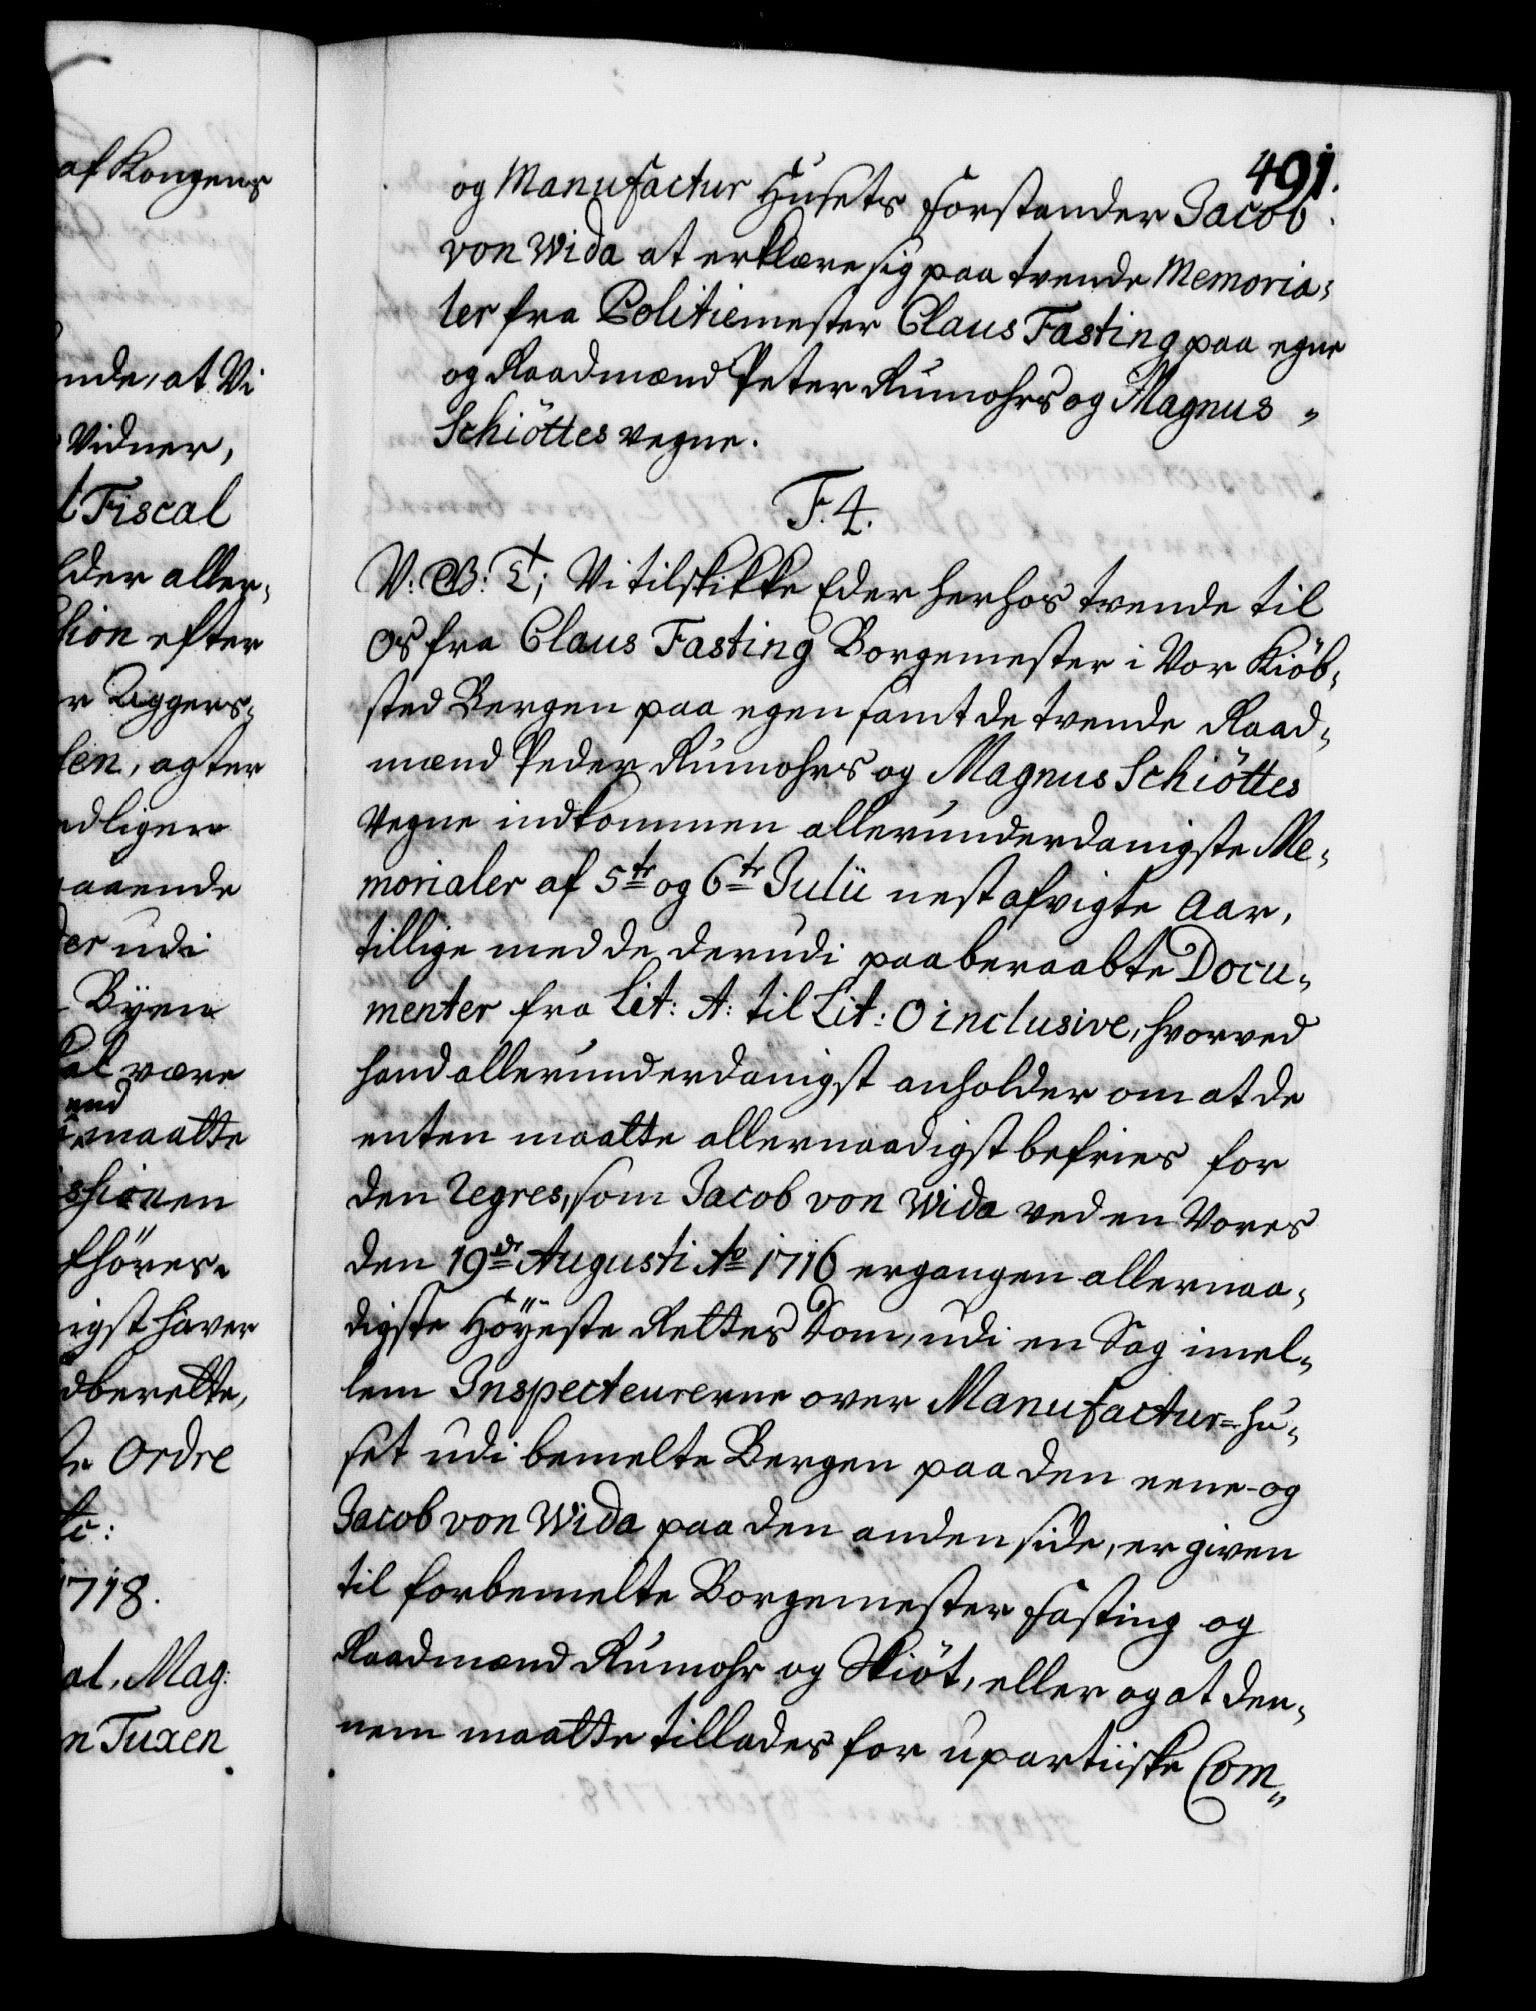 af Kongens
nde, at Vi
Vidner,
t Fiscal
lder aller-
hion efter
r Aggers-
len, agter
edligen
aaende
der udi
Byen
al være
end
maatte
shionen
fhöres.
igst haver
dberette,
te Ordre
tc:
1718.
al, Mag:
n Tuxen
491.
og Manufactur Husets Forstander Jacob
von Wida at erklære sig paa tvende Memoria-
ler fra Politiemester Claus Fasting paa egne
og Raadmænd Peter Rumohrs og Magnus
Schiöttes vegne.
F. 4.
V: G: T; Vi tilskikke Eder herhos tvende til
Os fra Claus Fasting Borgemester i Vor Kiöb-
sted Bergen paa egen samt de tvende Raad-
mænd Peder Rumohrs og Magnus Schiöttes
Vegne indkommen allerunderdanigste Me-
morialer af 5te og 6te Julii nest afvigte Aar,
tillige med de derudi paaberaabte Docu-
menter fra Lit: A: til Lit: O inclusive, hvorved
hand allerunderdanigst anholder om at de
enten maatte allernaadigst befries for
den regres, som Jacob von Wida ved en Vores
den 19de Augusti Ao 1716 ergangen allernaa-
digste Höyeste Rettes Dom, udi en Sag imel-
lem Inspecteurerne over Manufactur-Hu-
set udi bemelte Bergen paa den eene og
Jacob von Wida paa den anden side, er given
til forbemelte Borgemester Fasting og
Raadmænd Rumohr og Skiöt, eller og at den-
nem maatte tillades for upartiiske Com-